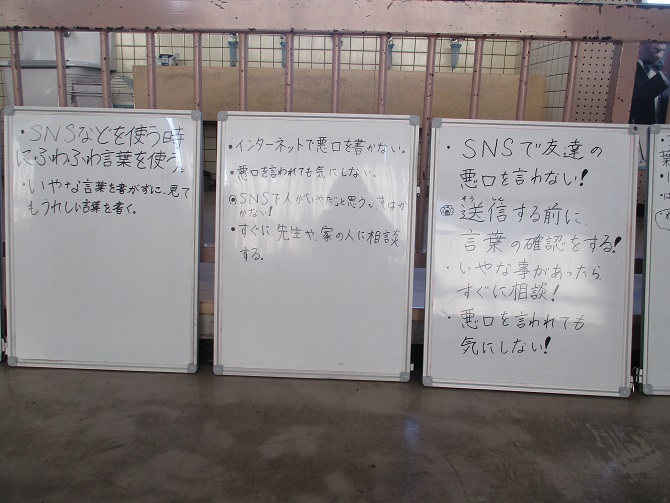 ・SNSなどを使う時
にふわふわ言葉を使う。
・いやな言葉を書かずに、見て
もうれしい言葉を書く。
・インターネットで悪口を書かない。
・悪口を言われても気にしない。
◎SNSで人が「いやだ」と思う言葉は
かかない!
・すぐに先生や、家の人に相談
する。
・SNSで友達の
悪口を言わない!
◎送信する前に
言葉の確認をする!
・いやな事があったら
すぐに相談!
・悪口を言われても
気にしない!